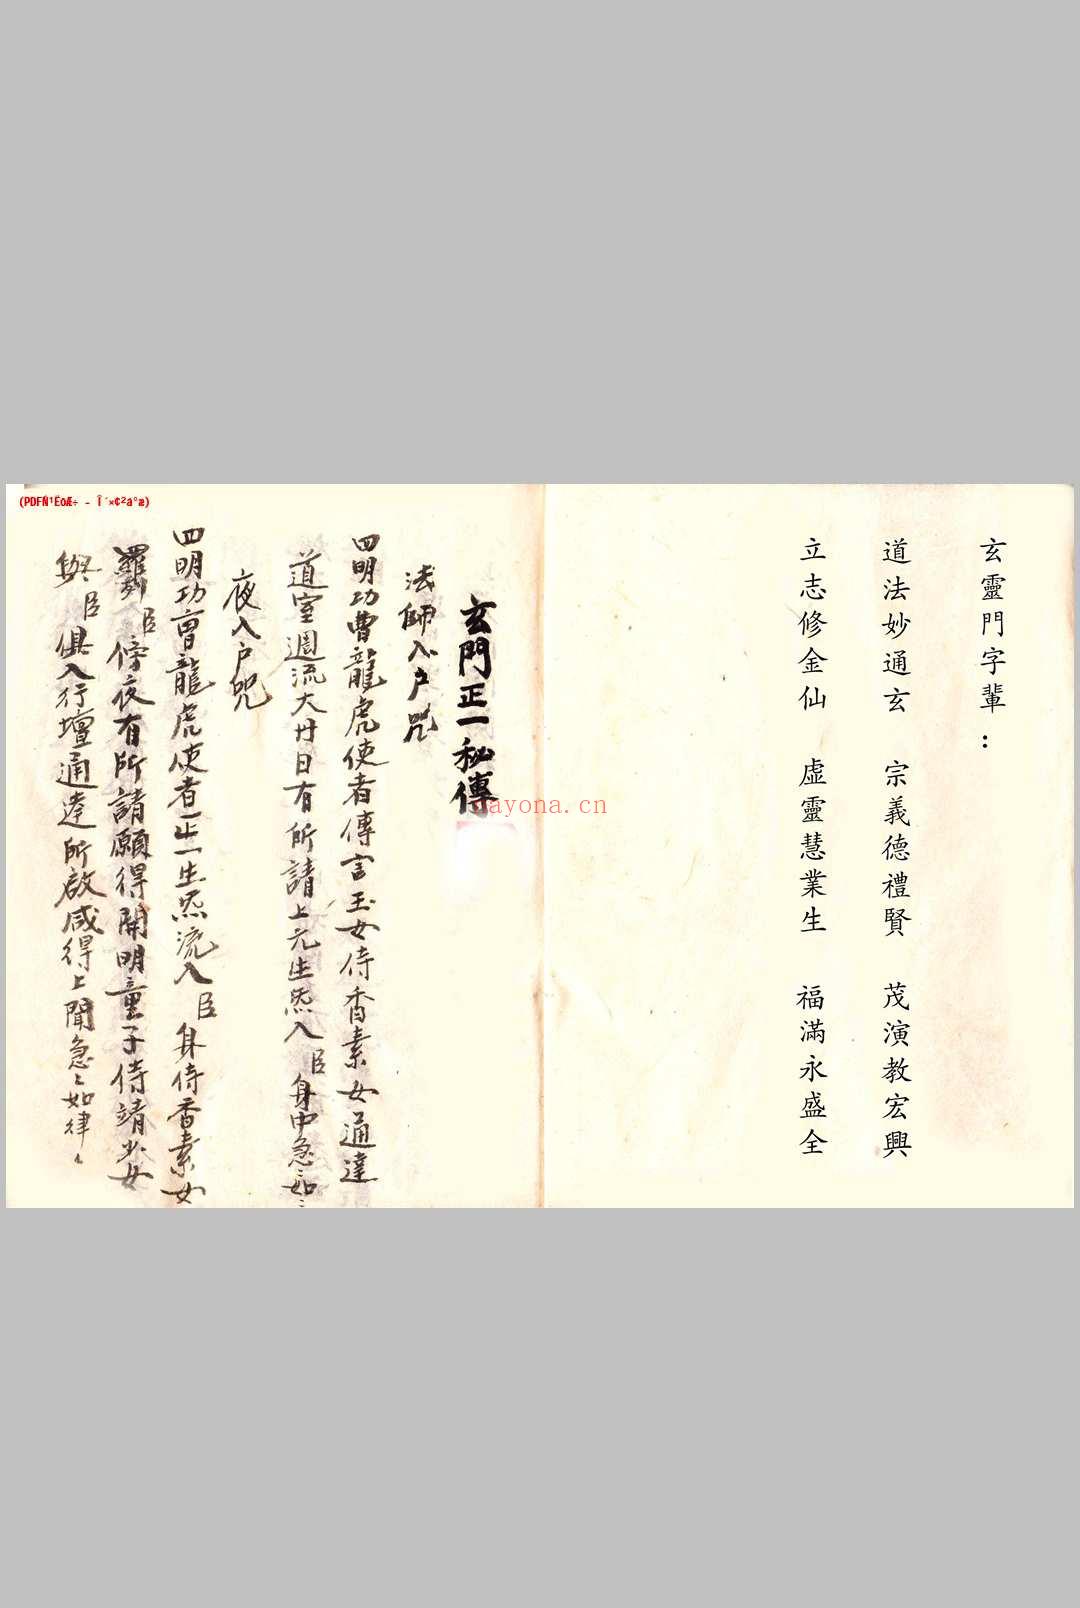 (PDFÑ¹ËõÆ÷ - Î´×¢²á°æ)
玄靈門字輩：
道法妙通玄　宗義德禮賢　茂演教宏興
立志修金仙　虛靈慧業生　福滿永盛全
玄門正一秘傳
nayona.cn
法師入户咒
四明功曹龍虎使者傳言玉女侍香素女通達
道室週流大丹日有所請上元生炁入臣身中急〻如〻
夜入户咒
四明功曹龍虎使者正一生炁流入臣身侍香素女
羅列臣傍夜有所請願得開明童子侍靖少女
與臣俱入行壇通達所啟咸得上聞急〻如律〻